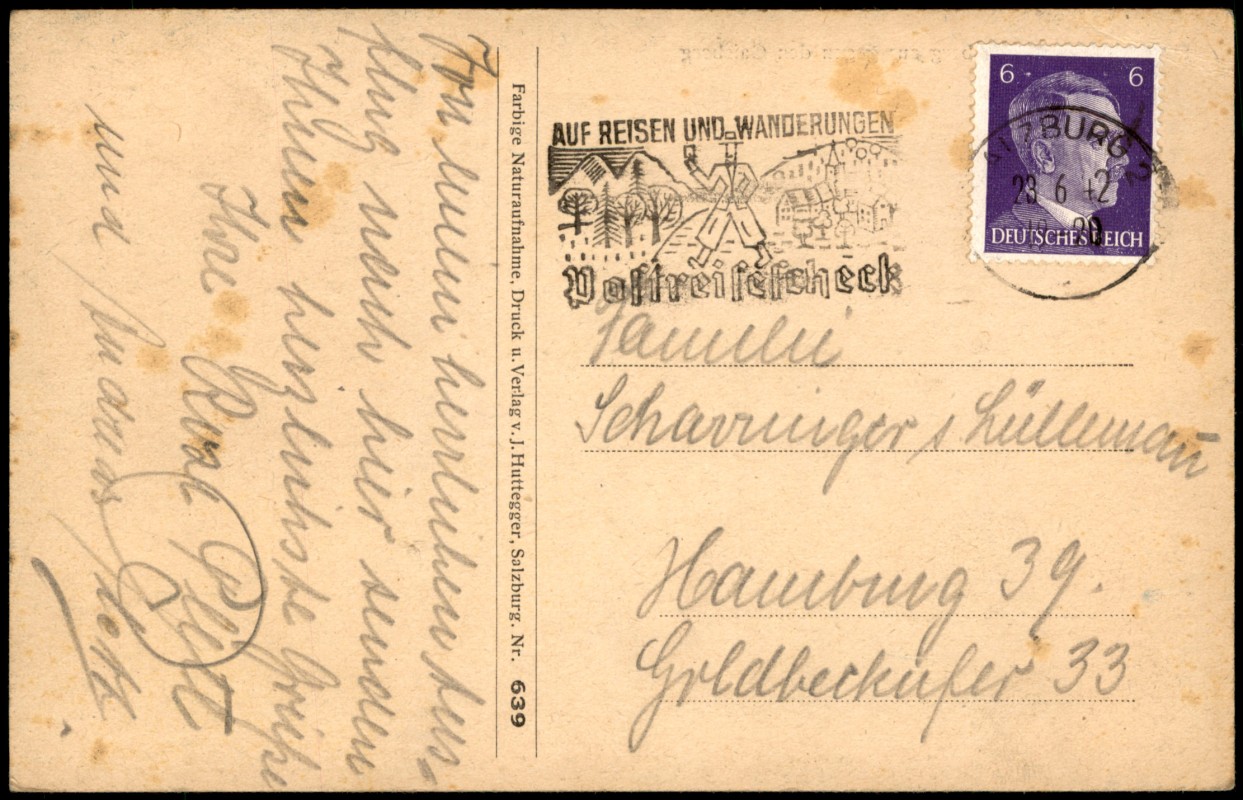 Von einem herrlichen Aus-
flug nach hier senden
Ihnen herzlichste Grüße
Ihre
und
Farbige Naturaufnahme, Druck u. Verlag v. J. Huttegger, Salzburg. Nr. 639
AUF REISEN UND WANDERUNGEN
Postreisescheck
6 6
DEUTSCHES REICH
SALZBURG 2
23 6 42
Familie
Scharringer / Lüllemau
Hamburg 39.
Goldbeckufer 33